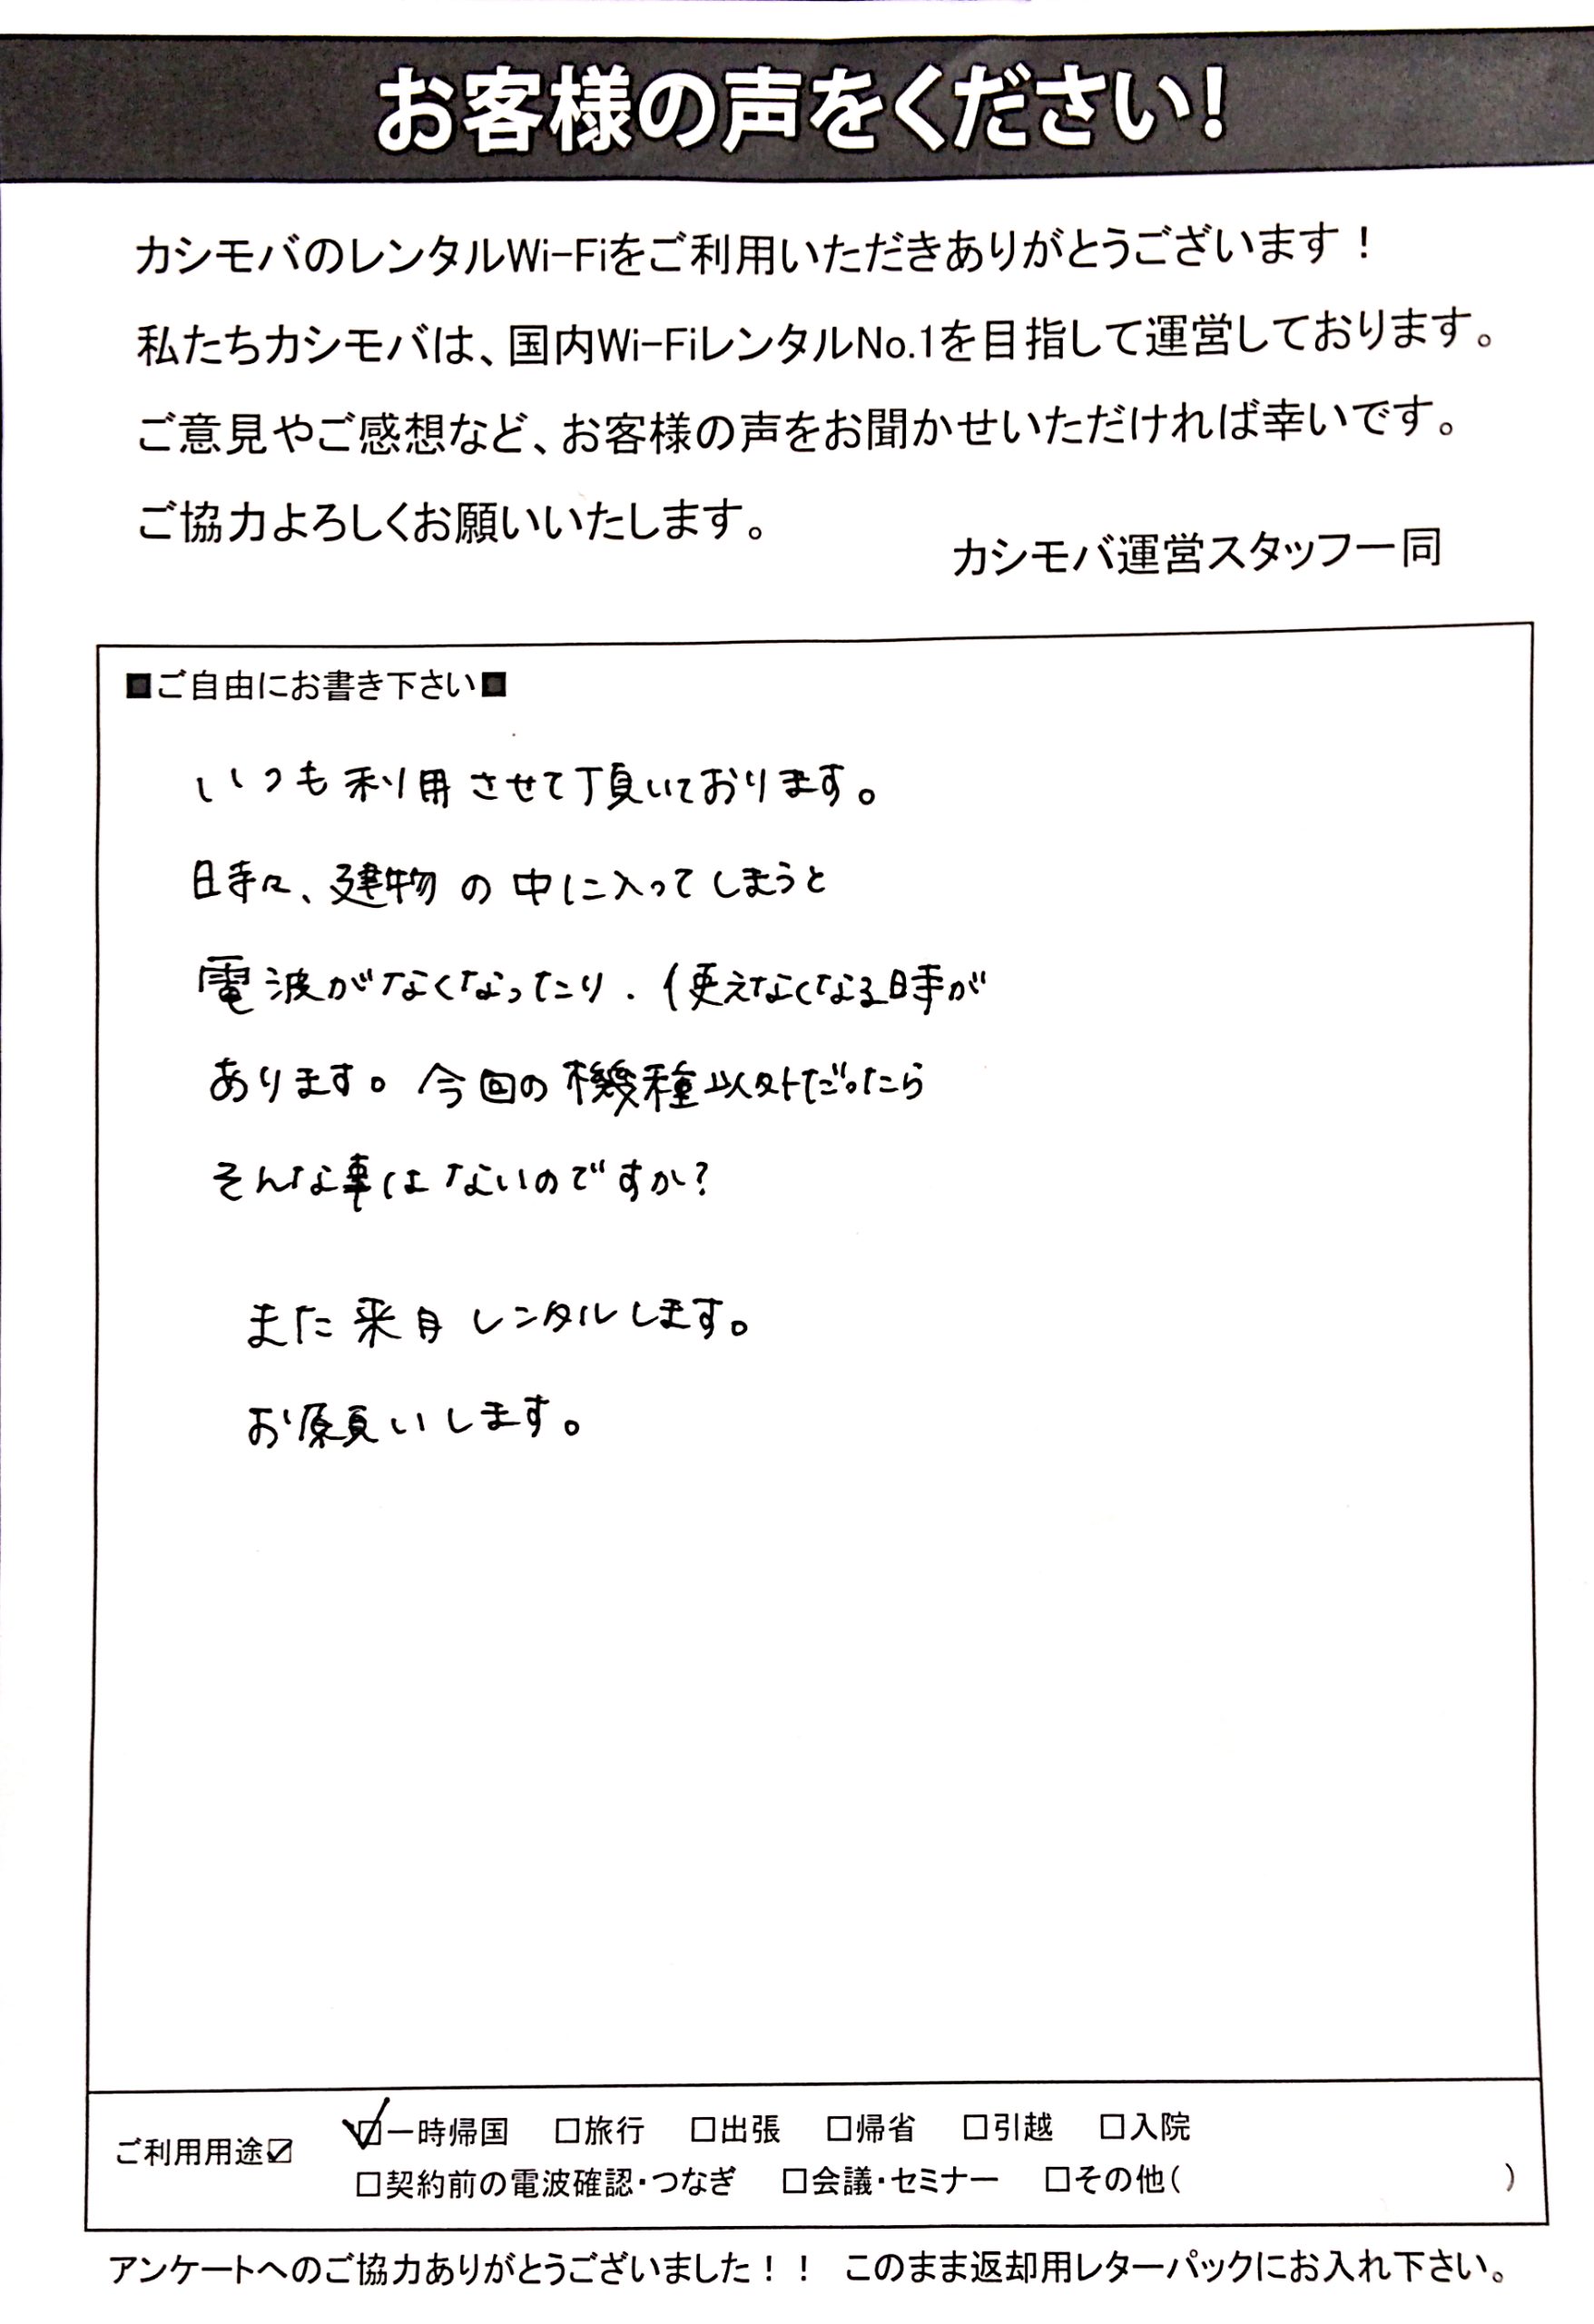 お客様の声をください!
カシモバのレンタルWi-Fiをご利用いただきありがとうございます！
私たちカシモバは、国内Wi-FiレンタルNo.1を目指して運営しております。
ご意見やご感想など、お客様の声をお聞かせいただければ幸いです。
ご協力よろしくお願いいたします。
カシモバ運営スタッフ一同
■ご自由にお書き下さい■
いつも利用させて頂いております。
時々、建物の中に入ってしまうと
電波がなくなったり、使えなくなる時が
あります。今回の機種以外だったら
そんな事はないのですか?
また来月レンタルします。
お願いします。
ご利用用途☑ ☑一時帰国 □旅行 □出張 □帰省 □引越 □入院
□契約前の電波確認・つなぎ □会議・セミナー □その他( )
アンケートへのご協力ありがとうございました！！ このまま返却用レターパックにお入れ下さい。